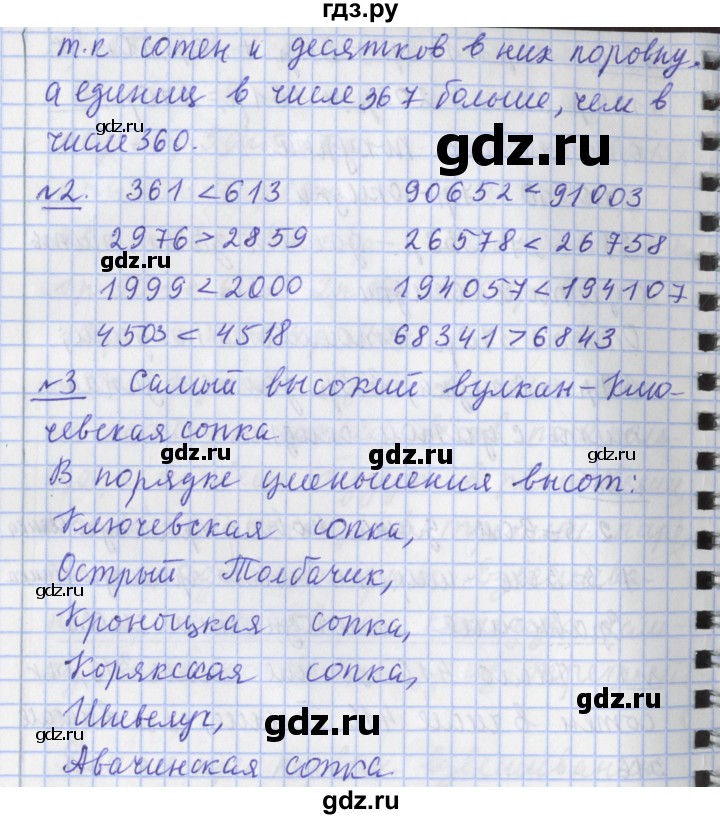 гдз.ру
т.к сотен и десятков в них поровну,
а единиц в числе 367 больше, чем в
gdz.ru
gdz.ru
числе 360.
№2. 361 < 613 90652 < 91003
2976 > 2859 26578 < 26758
gdz.ru
gdz.ru
1999 < 2000 194057 < 194107
4503 < 4518 68341 > 6843
№3 Самый высокий вулкан - Клю-
gdz.ru
чевская сопка
gdz.ru
В порядке уменьшения высот:
Ключевская сопка,
gdz.ru
Острый Толбачик,
gdz.ru
Кроноцкая сопка,
gdz.ru
Корякская сопка,
Шивелуч,
gdz.ru
gdz.ru
Авачинская сопка
gdz.ru
gdz.ru